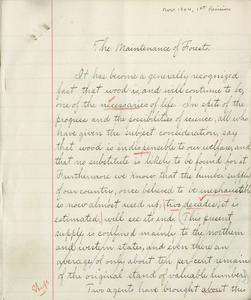 Nov. 1904, 1st Revision
The Maintenance of Forests.
It has become a generally recognized
fact that wood is, and will continue to be,
one of the necessaries of life. In spite of the
progress and the possibilities of science, all who
have given the subject consideration, say
that wood is indispensible to our welfare, and
that no substitute is likely to be found for it.
Furthermore we know that the lumber supply
of our country, once believed to be inexhaustible
is now almost used up; two decades, it is
estimated, will see its end. This present
supply is confined mainly to the northern
and western states, and even there an
average of only about ten per cent remains
of the original stand of valuable lumber.
Two agents have brought about this